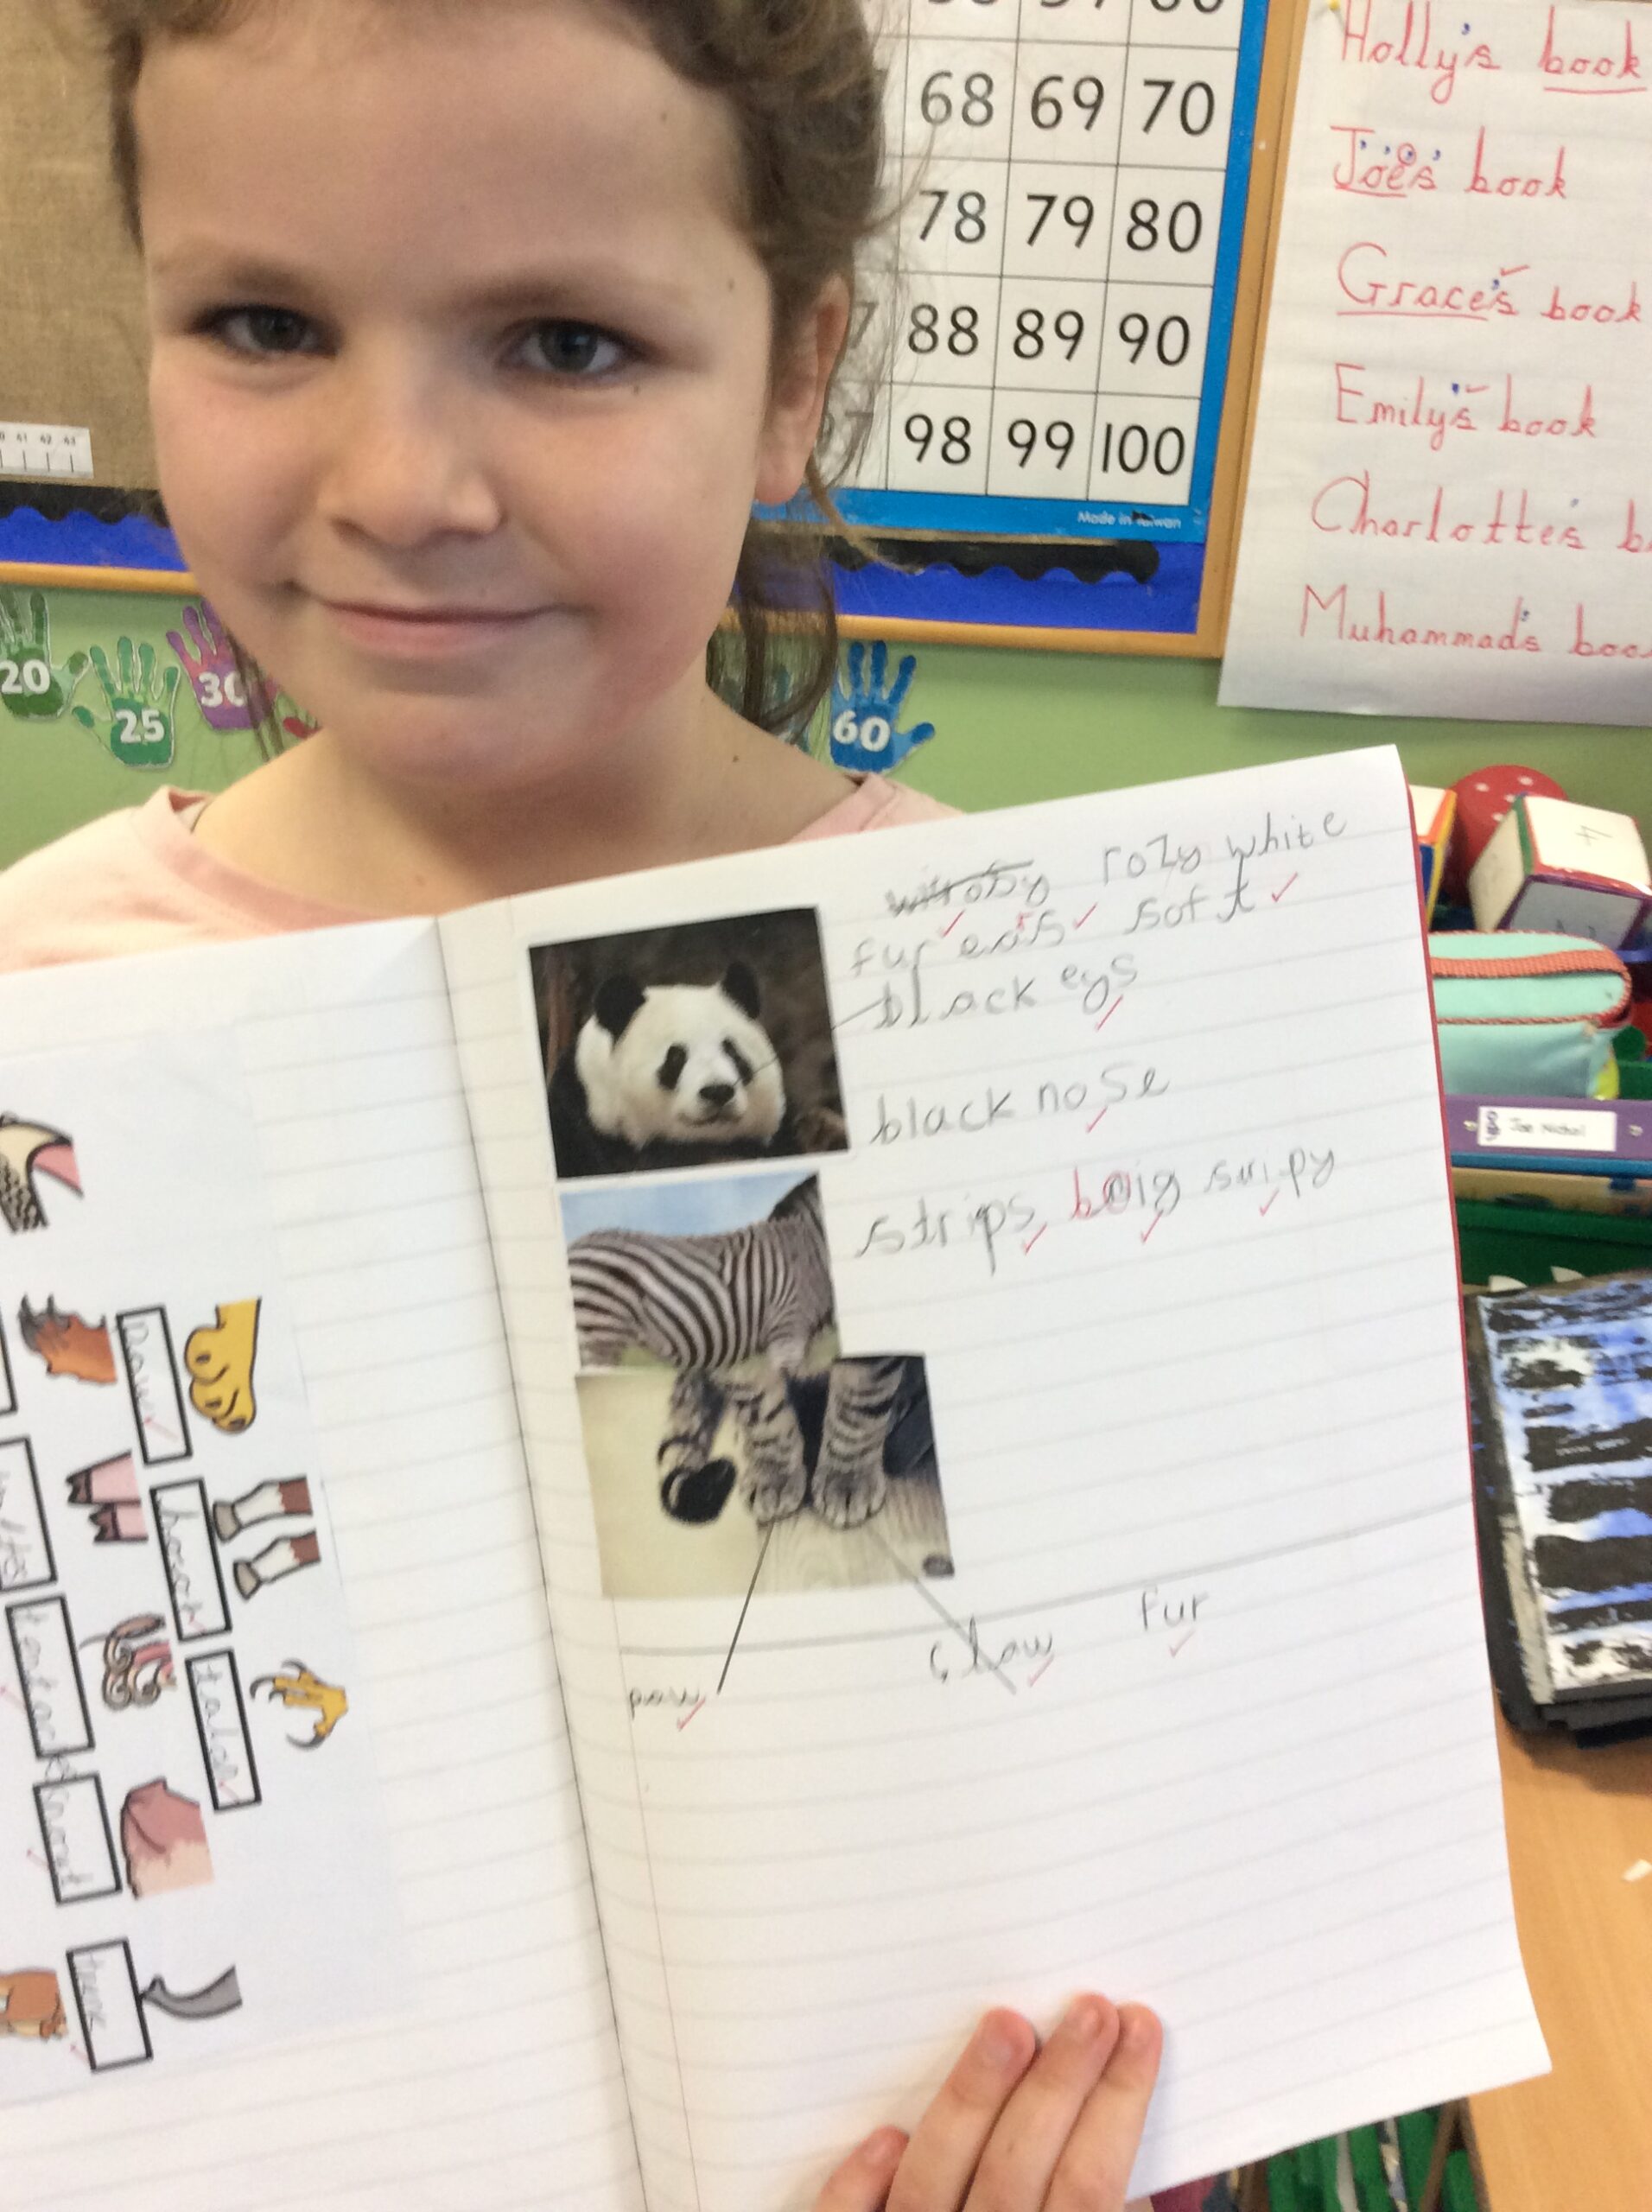 68 69 70
78 79 80
88 89 90
98 99 100
Made in Taiwan
Holly's book
Joe's book
Grace's book
Emily's book
Charlotte's b
Muhammad's boo
41 42 43
20
25
30
60
Joe Nichol
rozy white
fur ears soft
black eys
black nose
strips big
paw
claw fur
paw
talon
snout
trunk